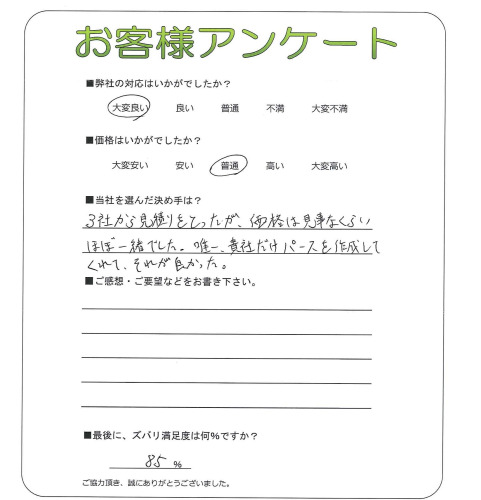 お客様アンケート
■弊社の対応はいかがでしたか？
大変良い 良い 普通 不満 大変不満
■価格はいかがでしたか？
大変安い 安い 普通 高い 大変高い
■当社を選んだ決め手は？
3社から見積りをとったが、価格は見事なくらい
ほぼ一緒でした。唯一、貴社だけパースを作成して
くれて、それが良かった。
■ご感想・ご要望などをお書き下さい。
■最後に、ズバリ満足度は何%ですか？
85 %
ご協力頂き、誠にありがとうございました。